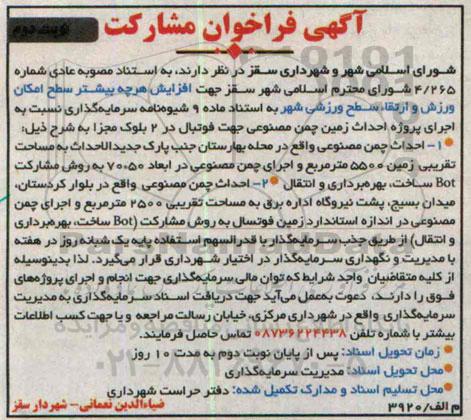 آگهی فراخوان مشارکت
نوبت دوم
شورای اسلامی شهر و شهرداری سقز در نظر دارند، به استناد مصوبه عادی شماره
۴/۲۶۵ شورای محترم اسلامی شهر سقز جهت افزایش هرچه بیشتر سطح امکان
ورزش و ارتقاء سطح ورزشی شهر به استناد ماده ۹ شیوه‌نامه سرمایه‌گذاری نسبت به
اجرای پروژه احداث زمین چمن مصنوعی جهت فوتبال در ۲ بلوک مجزا به شرح ذیل:
۱- احداث چمن مصنوعی واقع در محله بهارستان جنب پارک جدیدالاحداث به مساحت
تقریبی زمین ۵۵۰۰ مترمربع و اجرای چمن مصنوعی در ابعاد ۵۰*۷۰ به روش مشارکت
Bot ساخت، بهره‌برداری و انتقال ۲- احداث چمن مصنوعی واقع در بلوار کردستان،
میدان بسیج، پشت نیروگاه اداره برق به مساحت تقریبی ۲۵۰۰ مترمربع و اجرای چمن
مصنوعی در اندازه استاندارد زمین فوتسال به روش مشارکت (Bot ساخت، بهره‌برداری
و انتقال) از طریق جذب سرمایه‌گذار با قدرالسهم استفاده پایه یک شبانه روز در هفته
با مدیریت و نگهداری سرمایه‌گذار در اختیار شهرداری قرار می‌گیرد. لذا بدینوسیله
از کلیه متقاضیان واجد شرایط که توان مالی سرمایه‌گذاری جهت انجام و اجرای پروژه‌های
فوق را دارند، دعوت به‌عمل می‌آید جهت دریافت اسناد سرمایه‌گذاری به مدیریت
سرمایه‌گذاری واقع در شهرداری مرکزی، خیابان رسالت مراجعه و یا جهت کسب اطلاعات
بیشتر با شماره تلفن ۰۸۷۳۶۲۲۴۴۳۸ تماس حاصل فرمایند.
زمان تحویل اسناد: پس از پایان نوبت دوم به مدت ۱۰ روز
محل تحویل اسناد: مدیریت سرمایه‌گذاری
محل تسلیم اسناد و مدارک تکمیل شده: دفتر حراست شهرداری
م الف/۳۹۲۰
ضیاءالدین نعمانی- شهردار سقز